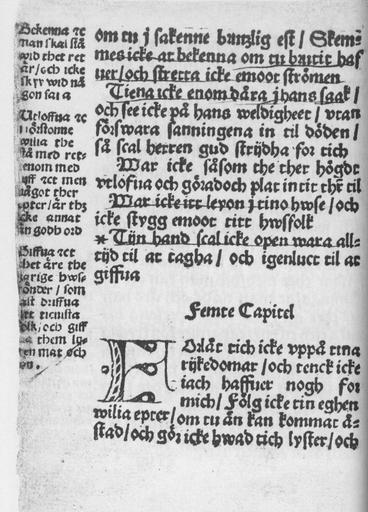 Bekenna ēt
man skal stå
wid thet ret
är/och icke
skyr wid nå
gon sata
Utloffua ēt
wilia the
stå med rets
enom med
iff ēt men
något ther
epter/är thz
icke annat
än godh ord
Giffua ēt
thet äre the
som
driffua
tienista
folk/och giff
a them ly-
en mat och
om tu j sakenne brutzlig est/Skem-
mes icke at bekenna om tu brutit haf
uer/och stretta icke emoot strömen
Tiena icke enom dåra j hans saak/
och see icke på hans weldigheet/vtan
förswara sanningena in til döden/
så scal herren gud strijdha for tich
War icke såsom the ther högdt
vtlofua och göradoch plat intit ther til
War icke itt leyon j tino hwse/och
icke stygg emoot titt hwsfolk
* Tijn hand scal icke open wara all-
tijd til at tagha/och igenluct til at
giffua
Femte Capitel
FOrlåt tich icke vppå tina
rijkedomar/och tenck icke
iach haffuer nogh for
mich/Fölg icke tin eghen
wilia epter/om tu än kan kommat å-
stad/och gör icke hwad tich lyster/och